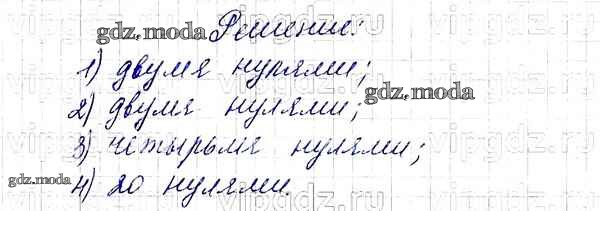 gdz.moda Решение:
1) двумя нулями;
2) двумя нулями; gdz.moda
3) четырьмя нулями;
gdz.moda 4) 20 нулями.